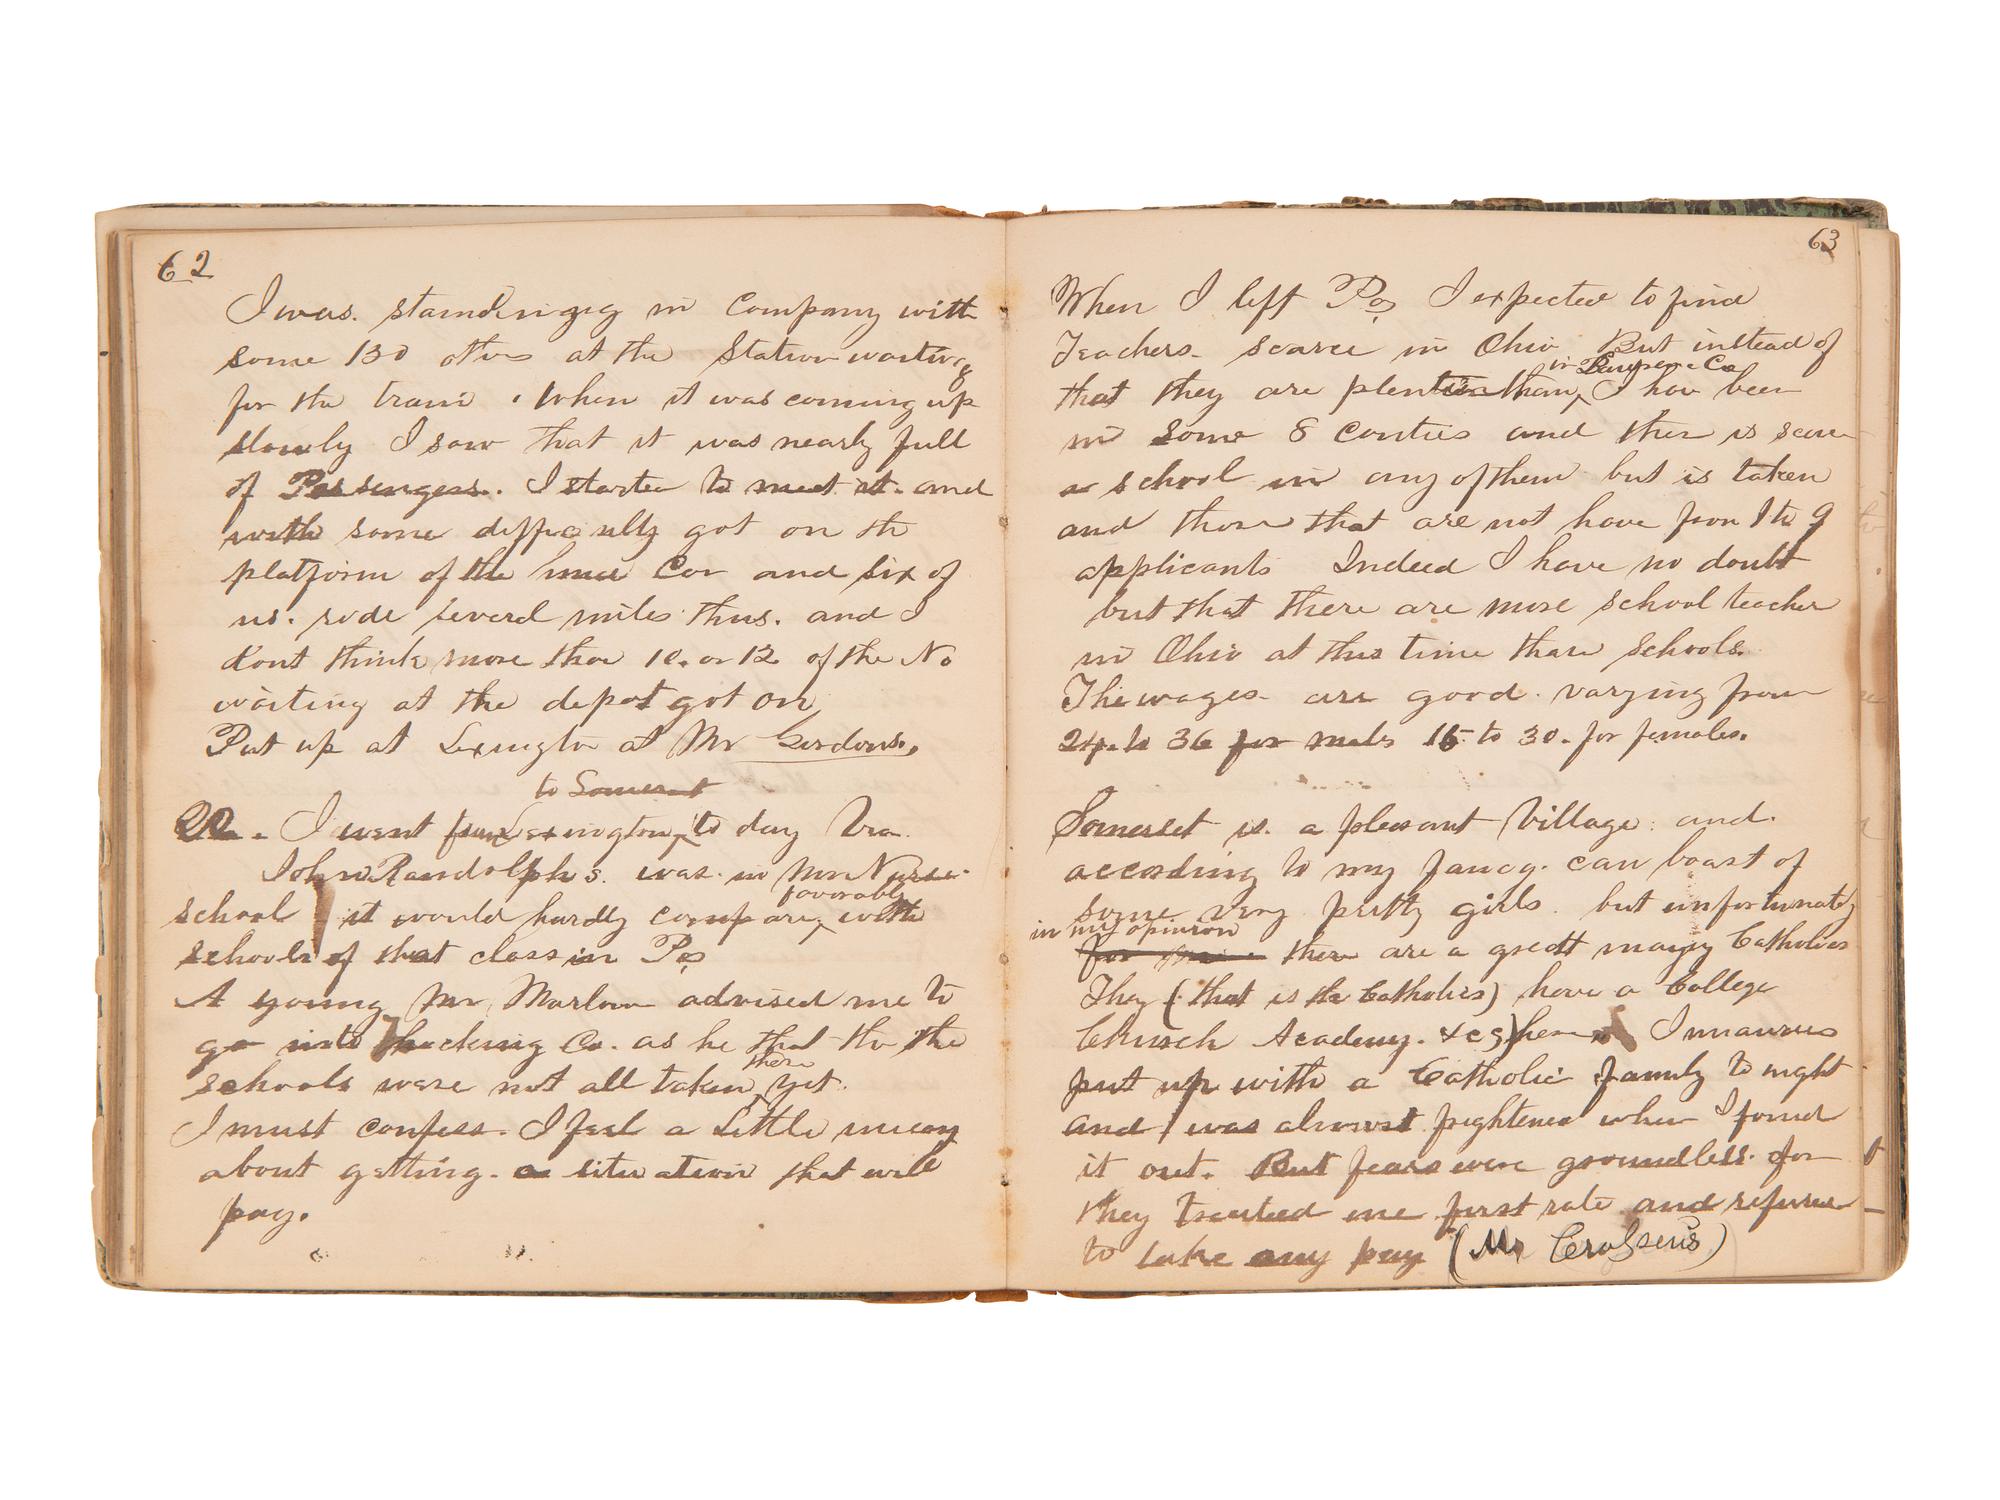 62
I was. standingng in Company with
some 130 others at the Station waiting
for the train. When it was coming up
slowly I saw that it was nearly full
of Passengers. I started to meet it. and
with some difficulty got on the
platform of the Car and six of
us. rode several miles thus. and I
dont think more than 10. or 12 of the No
waiting at the depot got on
Put up at Lexington at Mr Gordons.
to Somerset
22. I went from Lexington to day Via
John Randolphs. was in Mr
favorably
school it would hardly compare with
schools of that class in Pa
A young Mr advised me to
go into Hocking Co. as he that tho the
there
schools were not all taken yet.
I must confess. I feel a little uneasy
about getting. a situation that will
pay.
63
When I left Pa I expected to find
Teachers scarce in Ohio But instead of
in Co
that they are than I hav been
in some 8 conties and ther is scarce
a school in any of them but is taken
and those that are not have from 1 to 9
applicants Indeed I have no doubt
but that there are more school teacher
in Ohio at this time than schools.
The wages are good. varying from
24. to 36 for males 15 to 30. for females.
Somerset is. a pleasant Village. and.
according to my fancy. can boast of
some very pretty girls. but unfortunately
in my opinion
for there are a great many Catholics
They (that is the Catholics) have a College
Church Academy. &c) here I
put up with a Catholic family to night
and I was almost frightened when I found
it out. But fears were groundless. for
they treated me first rate and refused
to take any pay (Mr